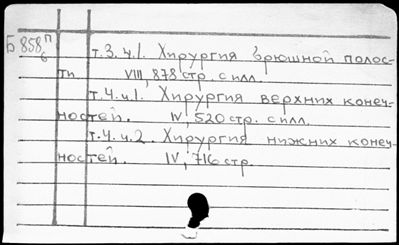 Б 858 П
б
т.3.ч.1. Хирургия брюшной полос-
ти VIII, 878 стр. с илл.
т.4.ч.1. Хирургия верхних конеч-
ностей. IV, 520 стр. с илл.
т.4.ч.2. Хирургия нижних конеч-
ностей. IV, 716 стр.